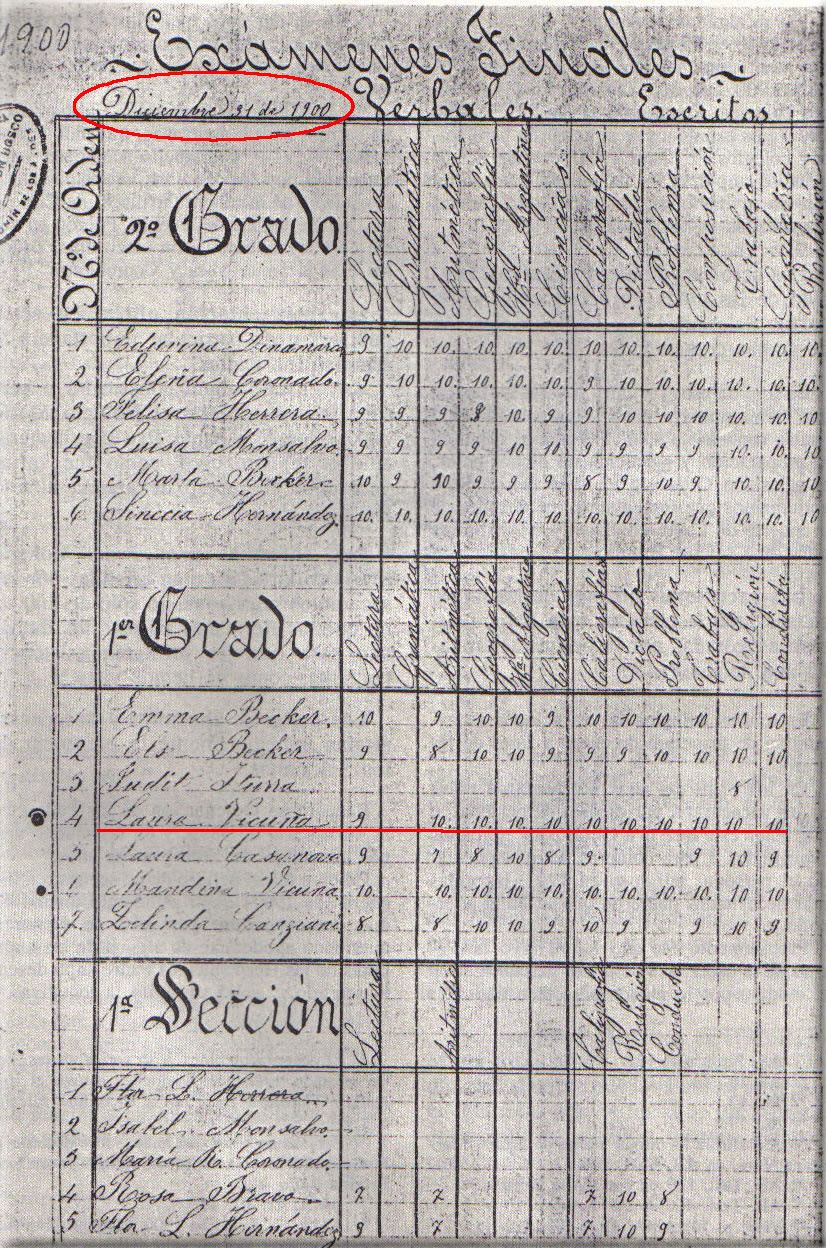 1900
Exámenes Finales.
Diciembre 31 de 1900 Verbales. Escritos
Nº. de Orden 2º Grado. Lectura Gramática Aritmética Geografía Hª Argentina Ciencias Caligrafía Dictado Problema Composición Trabajo Conducta Religión
1 Eduvina Dinamarca 9 10 10. 10. 10. 10. 10. 10. 10. 10. 10. 10. 10.
2 Elena Coronado. 9 10 10. 10. 10. 10. 9 10 10. 10. 10. 10. 10.
3 Felisa Herrera. 9 9 9 8 10. 9 9 10 10. 10 10. 10. 10
4 Luisa Monsalvo. 9 9 9 9 10 10 9 9 9 9 10. 10. 10
5 Marta Becker. 10 9 10 9 9 9 8 9 10 9. 10. 10. 10
6 Sinecia Hernández 10. 10. 10. 10. 10. 10. 10. 10. 10. 10. 10. 10. 10
1er Grado. Lectura Gramática Aritmética Geografía Hª Argentina Ciencias Caligrafía Dictado Problema Trabajo Religión Conducta
1 Emma Becker. 10. 9 10 10 9 10 10 10 10 10 10
2 Els Becker 9 8 10 10 9 9 9 10 10 10 10
3 Judit Iturra 8
4 Laura Vicuña 9 10. 10. 10. 10 10 10 10 10 10 10
5 Laura Casanova 9 7 8 10 8 9. 9 10 9
6 Mandina Vicuña 10. 10. 10. 10. 10. 10. 10. 10. 10 10 10
7. Zelinda Canziani 8 8 10 10 9 10 9 9 10 9
1ª Sección Lectura Aritmética Caligrafía Religión Conducta
1 Flor L. Herrera
2 Isabel Monsalvo.
3 María R. Coronado.
4 Rosa Bravo. 7 7 7 10 8
5 Flor L. Hernández 9 7 7 10 9